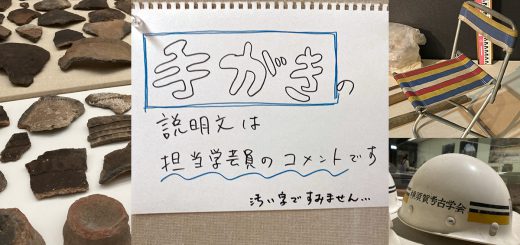 手がきの
説明文は
担当学芸員のコメントです
汚い字ですみません…
横須賀考古学会